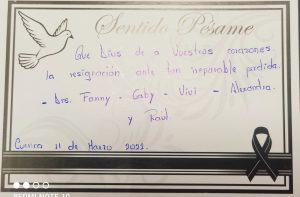 Sentido Pésame
Que Dios de a vuestros corazones
la resignación ante tan irreparable perdida.
- Drs. Fanny - Gaby - Vivi - Alexandra.
y Raúl.
Cuenca 11 de Marzo 2022.
REDMI NOTE 10